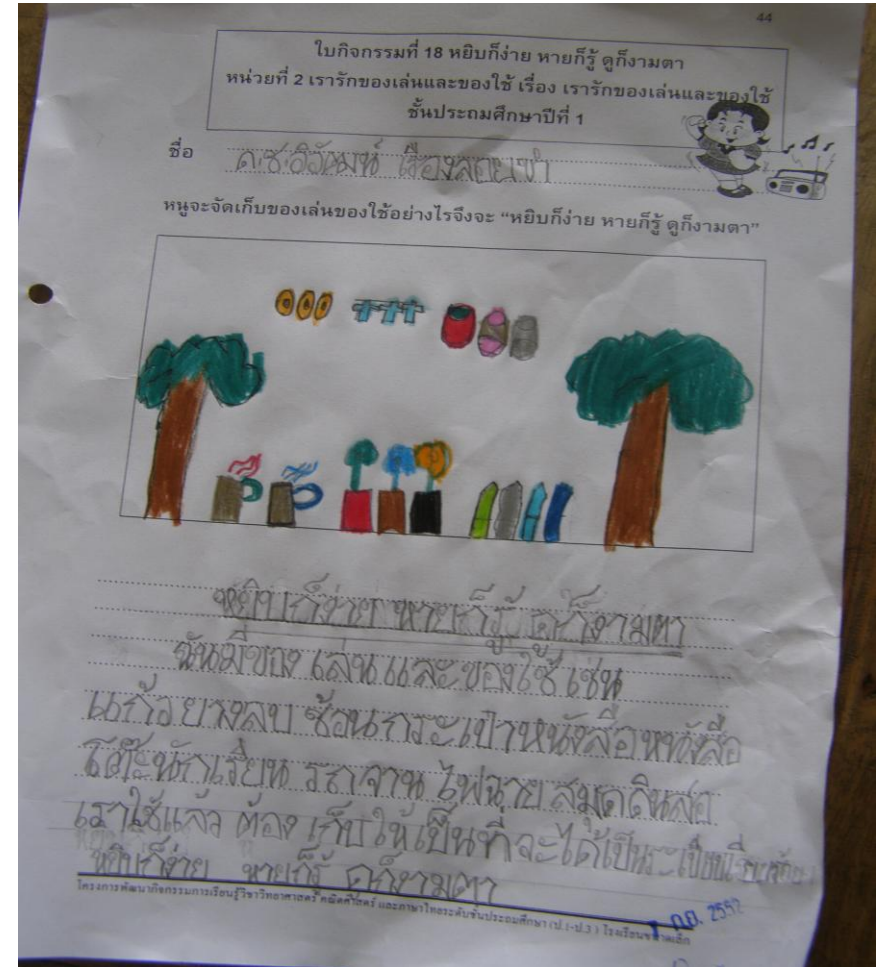 44
ใบกิจกรรมที่ 18 หยิบก็ง่าย หายก็รู้ ดูก็งามตา
หน่วยที่ 2 เรารักของเล่นและของใช้ เรื่อง เรารักของเล่นและของใช้
ชั้นประถมศึกษาปีที่ 1
ชื่อ ด.ช.อิวัฒน์ เรืองลอยขำ
หนูจะจัดเก็บของเล่นของใช้อย่างไรจึงจะ “หยิบก็ง่าย หายก็รู้ ดูก็งามตา”
หยิบก็ง่าย หายก็รู้ ดูก็งามตา
ฉันมีของเล่นและของใช้ เช่น
แก้ว ยางลบ ช้อน กระเป๋าหนังสือ หนังสือ
โต๊ะนักเรียน รถ จาน ไฟฉาย สมุด ดินสอ
เราใช้แล้ว ต้อง เก็บให้เป็นที่จะได้เป็นระเบียบเรียบร้อย
หยิบก็ง่าย หายก็รู้ ดูก็งามตา
โครงการพัฒนากิจกรรมการเรียนรู้วิชาวิทยาศาสตร์ คณิตศาสตร์ และภาษาไทยระดับชั้นประถมศึกษา (ป.1-ป.3) โรงเรียนขนาดเล็ก
ก.ย. 2552